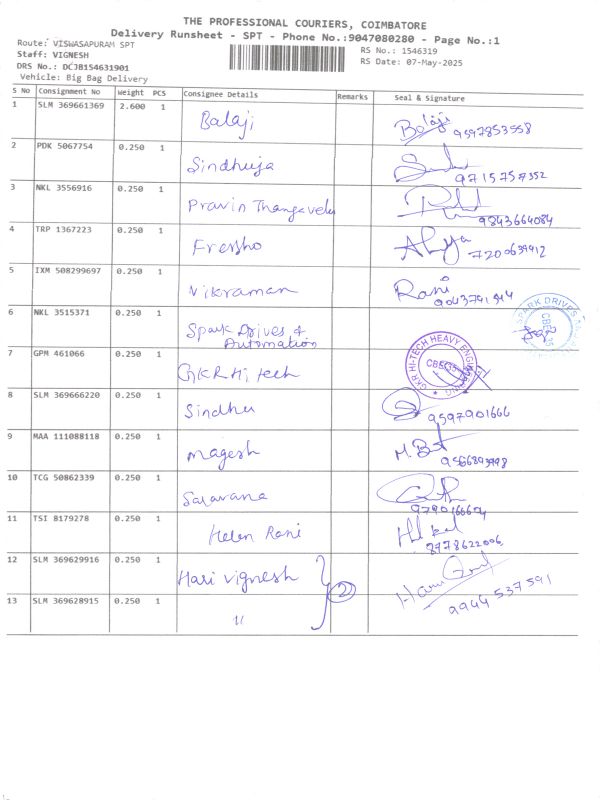 THE PROFESSIONAL COURIERS, COIMBATORE
Delivery Runsheet - SPT - Phone No.:9047080280 - Page No.:1
Route: VISWASAPURAM SPT
Staff: VIGNESH
DRS No.: DCJB154631901
Vehicle: Big Bag Delivery
RS No.: 1546319
RS Date: 07-May-2025
S No Consignment No Weight PCS Consignee Details Remarks Seal & Signature
1 SLM 369661369 2.600 1 Balaji Balaji 9597853558
2 PDK 5067754 0.250 1 Sindhuja 9715757352
3 NKL 3556916 0.250 1 Pravin Thangavelu 9843664084
4 TRP 1367223 0.250 1 Fressho
5 IXM 508299697 0.250 1 Vikraman Rani
6 NKL 3515371 0.250 1 Spark Drives &
Automation SPARK DRIVES
7 GPM 461066 0.250 1 GKR Hi tech GKR HI-TECH HEAVY
8 SLM 369666220 0.250 1 Sindhu 9597901666
9 MAA 111088118 0.250 1 Magesh
10 TCG 50862339 0.250 1 Saravana
11 TSI 8179278 0.250 1 Helen Rani 8778622006
12 SLM 369629916 0.250 1 Hari Vignesh 2 9944537591
13 SLM 369628915 0.250 1 "